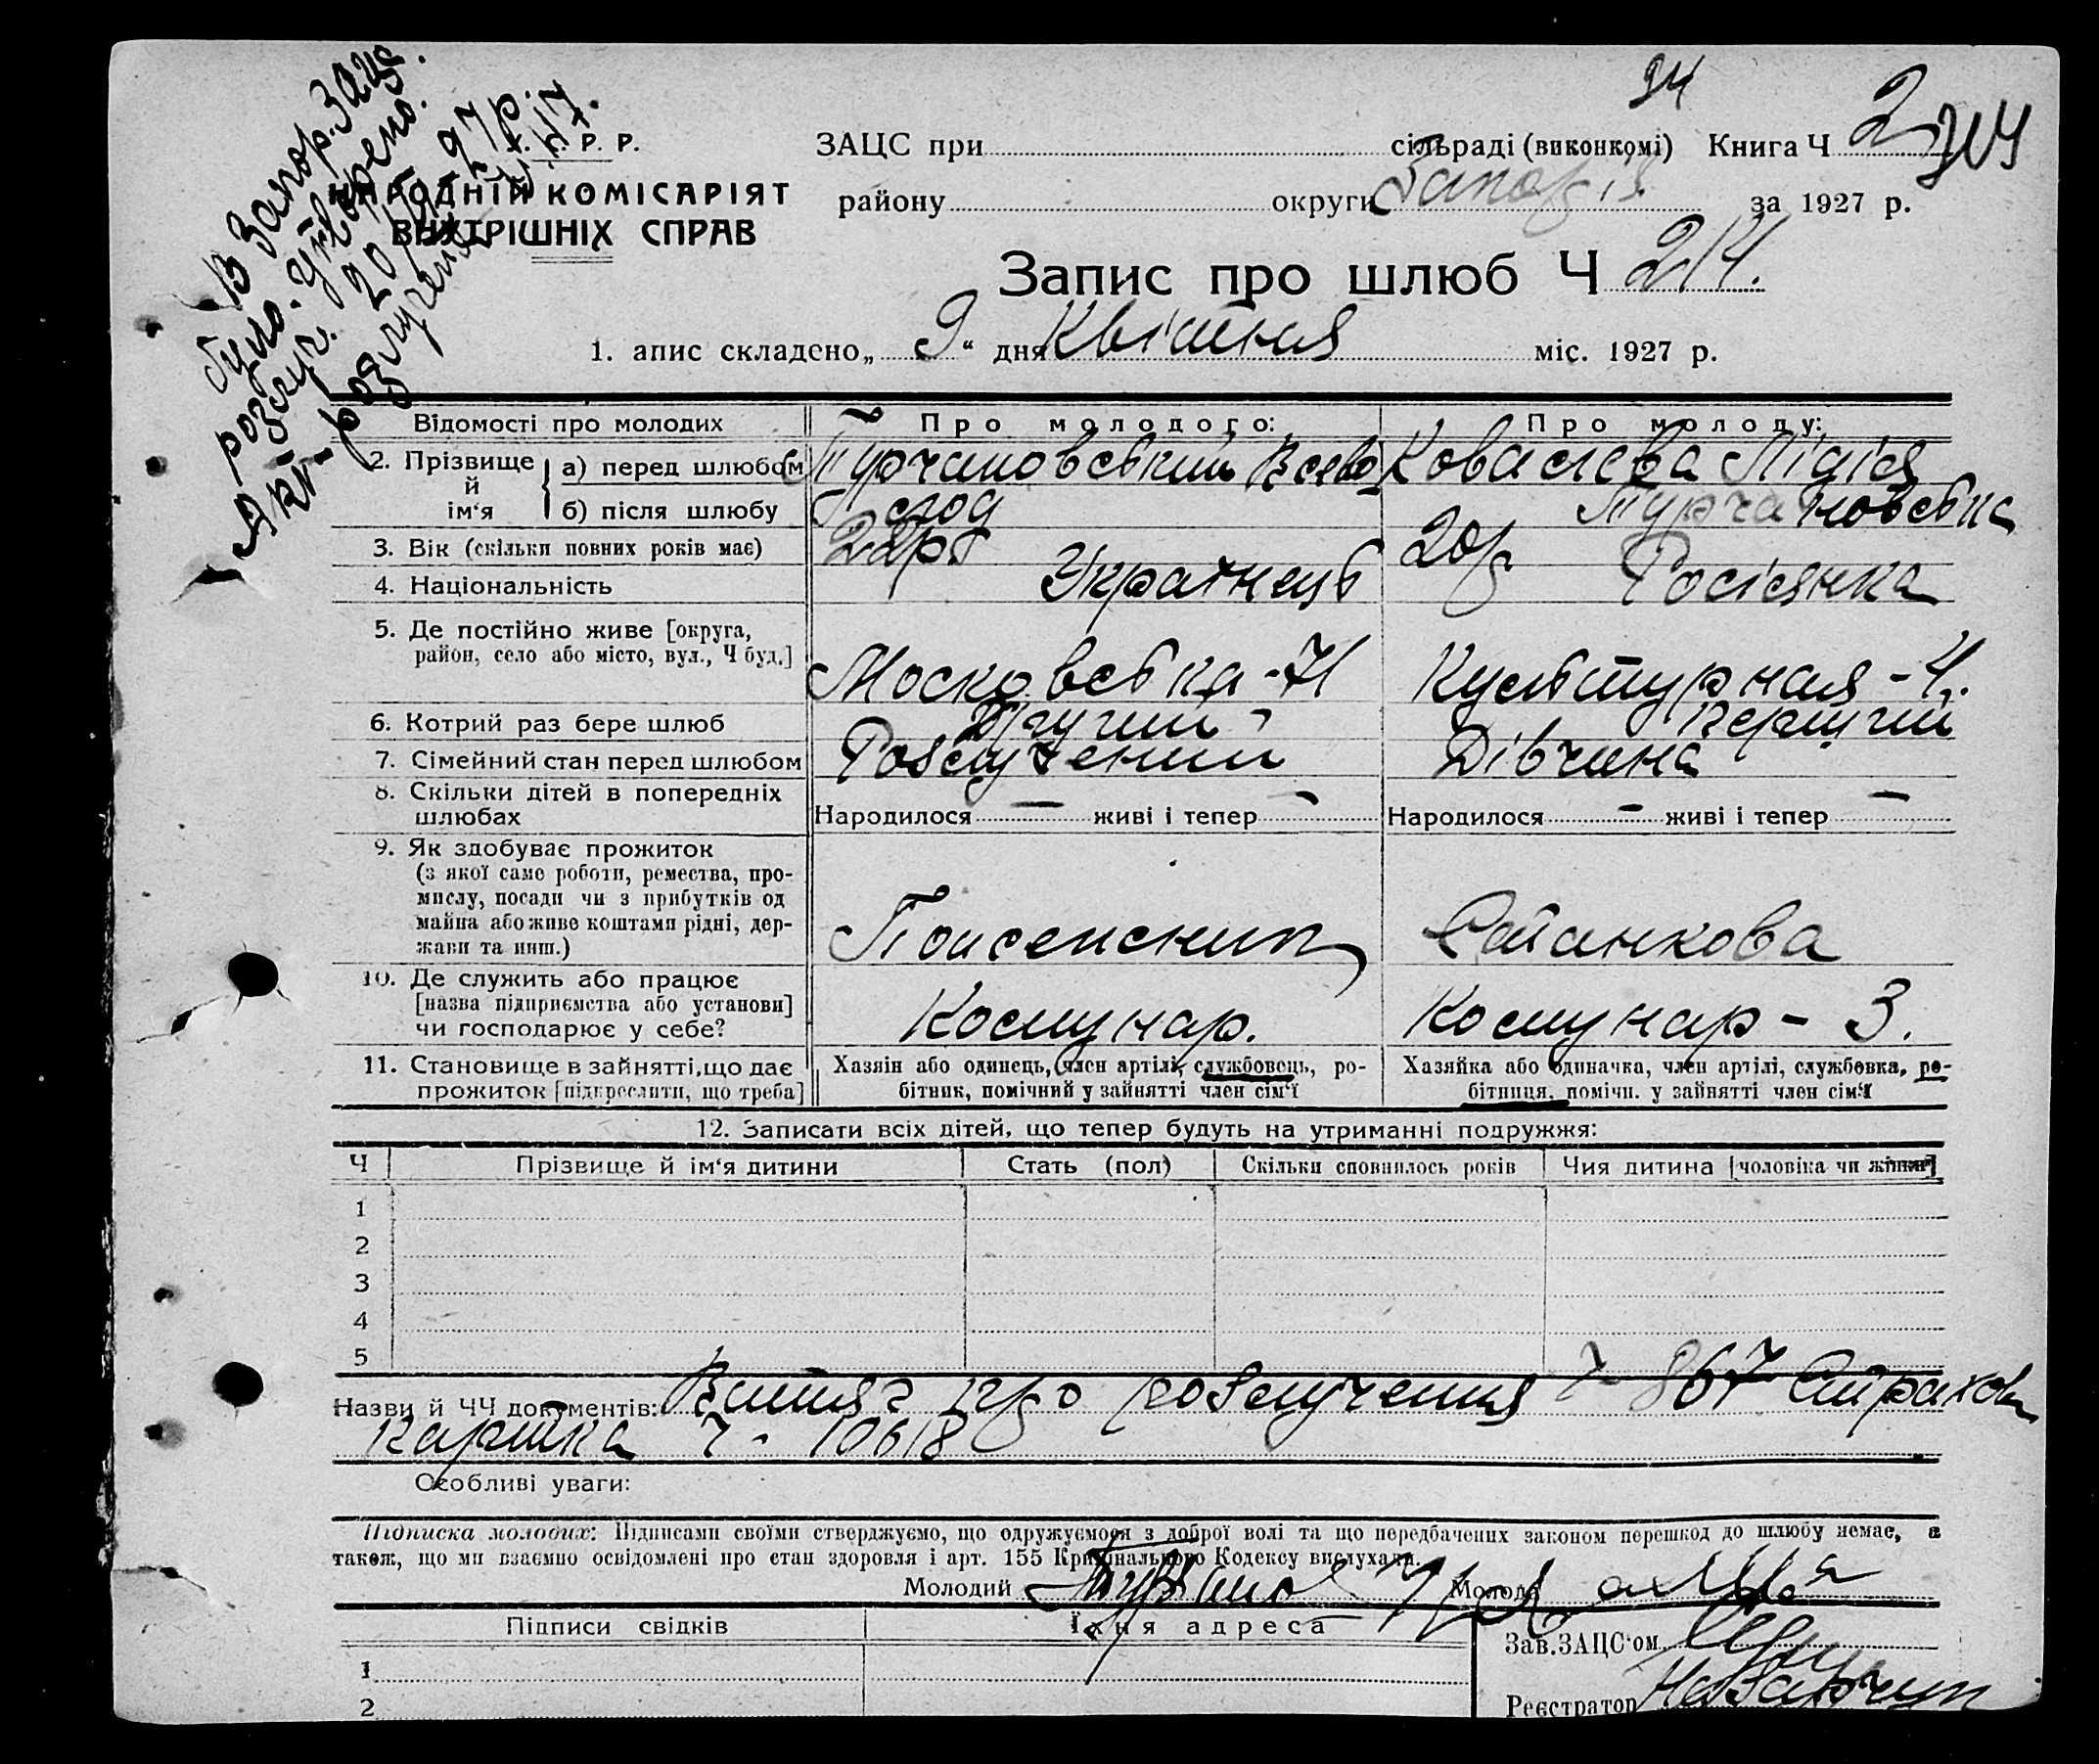 В Запор. Загс
було. Утворено.
розлуч. 20/V-27р.
Акт розлучення Ч. 417.
Р. Р.
НАРОДНІЙ КОМІСАРІЯТ
ВНУТРІШНІХ СПРАВ
34
ЗАЦС при сільраді (виконкомі) Книга Ч 2
району округи Запоріз. за 1927 р.
Запис про шлюб Ч 214.
1. апис складено „ 9 “ дня Квітня міс. 1927 р.
Відомості про молодих Про молодого: Про молоду:
2. Прізвище й ім‘я а) перед шлюбом Турчановський Всево Ковалева Лідія
б) після шлюбу лод Турчановська
3. Вік (скільки повних років має) 22р. 20р
4. Національність Українець Росіянка
5. Де постійно живе [округа, район, село або місто, вул., Ч буд.] Московська-71 Культурная-4.
6. Котрий раз бере шлюб Другий Перший
7. Сімейний стан перед шлюбом Розлучений Дівчина
8. Скільки дітей в попередніх шлюбах Народилося — живі і тепер — Народилося — живі і тепер —
9. Як здобуває прожиток
(з якої само роботи, ремества, про-
мислу, посади чи з прибутків од
майна або живе коштами рідні, дер-
жави та инш.)
10. Де служить або працює
[назва підприємства або установи]
чи господарює у себе? Комунар. Комунар - 3.
11. Становище в зайнятті, що дає прожиток [підкреслити, що треба]
Хазяїн або одинець, член артілі, службовець, ро-
бітник, помічний у зайнятті член сім‘ї
Хазяйка або одиначка, член артілі, службовка, ро-
бітниця, помічн. у зайнятті член сім‘ї
12. Записати всіх дітей, що тепер будуть на утриманні подружжя:
Ч Прізвище й ім‘я дитини Стать (пол) Скільки сповнилось років Чия дитина [чоловіка чи жінки]
1
2
3
4
5
Назви й ЧЧ документів: Витяг про розлучення Ч 867 Страхов
картка Ч. 10618
Особливі уваги:
Підписка молодих: Підписами своїми стверджуємо, що одружуємося з доброї волі та що передбачених законом перешкод до шлюбу немає, а
також, що ми взаємно освідомлені про стан здоровля і арт. 155 Кримінального Кодексу вислухали.
Молодий Молода
Підписи свідків Їхня адреса
Зав. ЗАЦС‘ом
1
Реєстратор
2